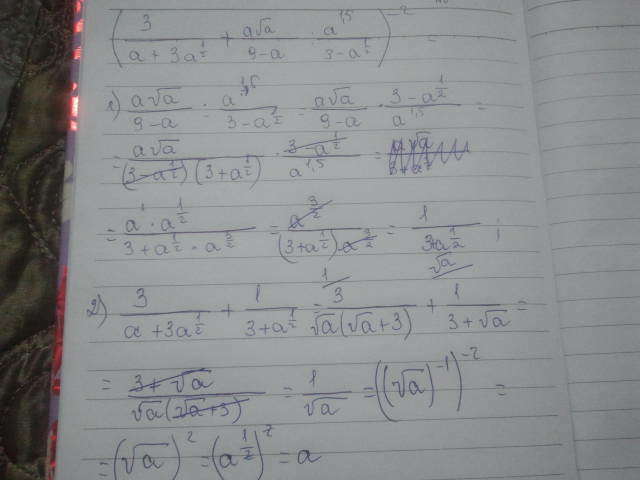 (3/(a + 3a^(1/2)) + a√a/(9-a) : a^(1,5)/(3-a^(1/2)))^(-2) =
1) a√a/(9-a) : a^(1,5)/(3-a^(1/2)) = a√a/(9-a) · (3-a^(1/2))/a^(1,5) =
= a√a/((3-a^(1/2))(3+a^(1/2))) · (3-a^(1/2))/a^(1,5) =
= (a^1 · a^(1/2))/(3+a^(1/2) · a^(3/2)) = a^(3/2)/((3+a^(1/2))·a^(3/2)) = 1/(3+a^(1/2)) ;
2) 3/(a + 3a^(1/2)) + 1/(3+a^(1/2)) = 3/(√a(√a+3)) + 1/(3+√a) =
= (3+√a)/(√a(√a+3)) = 1/√a = ((√a)^(-1))^(-2) =
= (√a)^2 = (a^(1/2))^2 = a